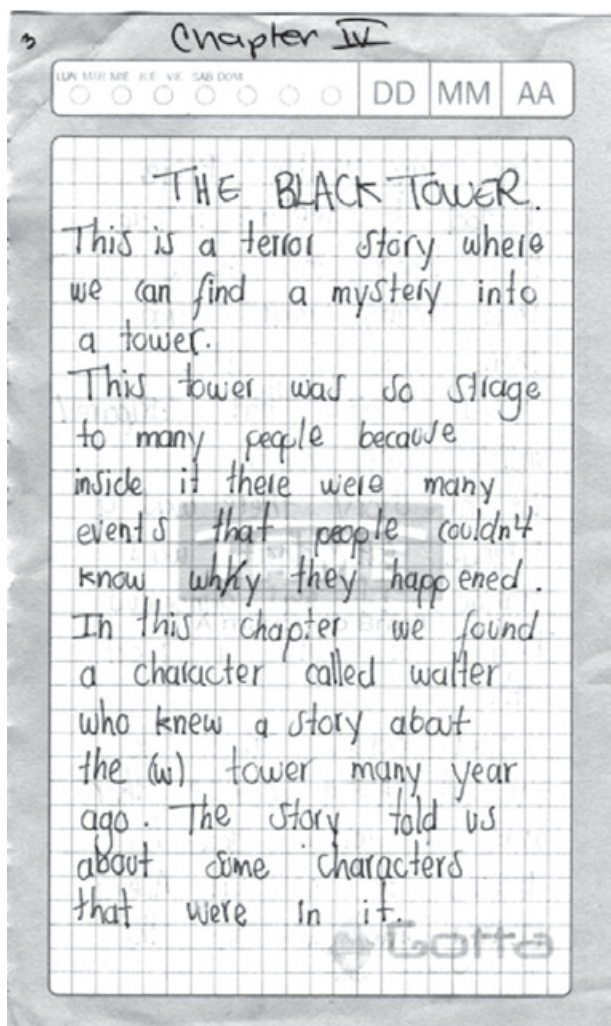 3
Chapter IV
LUN MAR MIE JUE VIE SAB DOM
DD MM AA
THE BLACK TOWER.
This is a terror story where
we can find a mystery into
a tower.
This tower was so strage
to many people because
inside it there were many
events that people couldn't
know whky they happened.
In this chapter we found
a character called walter
who knew a story about
the (w) tower many year
ago. The story told us
about some characters
that were in it.
Gotta